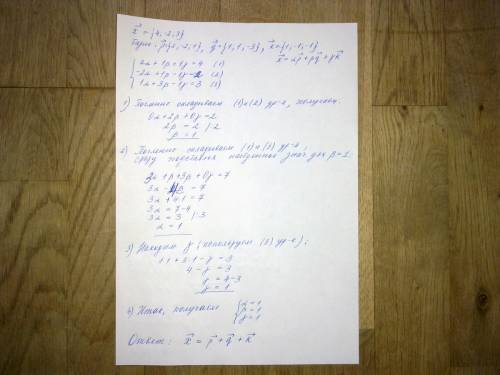 x⃗ = {4, -2, 3}
p⃗ {2, -2, 1}, q⃗ = {1, 1, -3}, k⃗ = {1, -1, -1}
x⃗ = αp⃗ + βq⃗ + γk⃗
2α + 1β + 1γ = 4 (1)
-2α + 1β - 1γ = -2 (2)
1α + 3β - 1γ = 3 (3)
1) Почленно складываем (1) и (2) ур-я, получаем:
0α + 2β + 0γ = 2
2β = 2 /:2
β = 1
2) Почленно складываем (1) и (3) ур-я,
сразу подставляя найденное знач. для β = 1:
3α + β + 3β + 0γ = 7
3α + 4β = 7
3α + 4·1 = 7
3α = 7-4
3α = 3 /:3
α = 1
3) Находим γ (используем (3) ур-е):
1 + 3·1 - γ = 3
4 - γ = 3
γ = 4-3
γ = 1
4) Итак, получаем
α = 1
β = 1
γ = 1
Ответ: x⃗ = p⃗ + q⃗ + k⃗